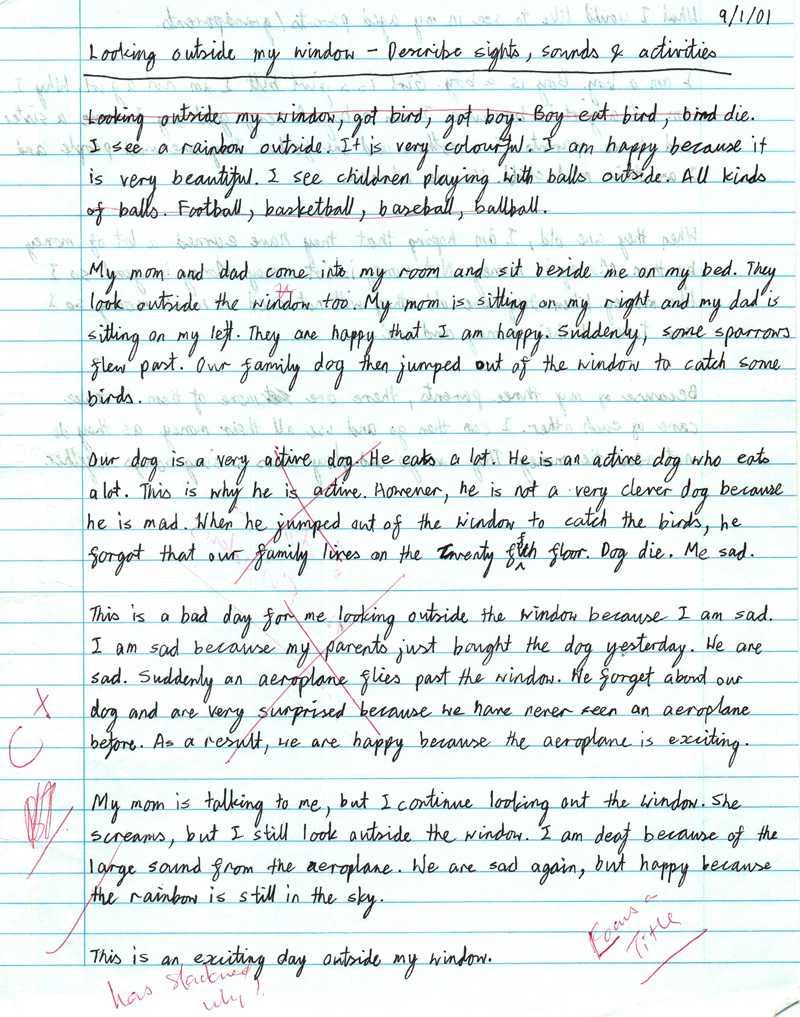 9/1/01
Looking outside my window - Describe sights, sounds & activities
Looking outside my window, got bird, got boy. Boy eat bird, bird die.
I see a rainbow outside. It is very colourful. I am happy because it
is very beautiful. I see children playing with balls outside. All kinds
of balls. Football, basketball, baseball, ballball.
My mom and dad come into my room and sit beside me on my bed. They
look outside the window too. My mom is sitting on my right and my dad is
sitting on my left. They are happy that I am happy. Suddenly, some sparrows
flew past. Our family dog then jumped out of the window to catch some
birds.
Our dog is a very active dog. He eats a lot. He is an active dog who eats
alot. This is why he is active. However, he is not a very clever dog because
he is mad. When he jumped out of the window to catch the birds, he
forgot that our family lives on the twenty fifth floor. Dog die. Me sad.
This is a bad day for me looking outside the window because I am sad.
I am sad because my parents just bought the dog yesterday. We are
sad. Suddenly an aeroplane flies past the window. We forget about our
dog and are very surprised because we have never seen an aeroplane
before. As a result, we are happy because the aeroplane is exciting.
C
My mom is talking to me, but I continue looking out the window. She
screams, but I still look outside the window. I am deaf because of the
large sound from the aeroplane. We are sad again, but happy because
the rainbow is still in the sky.
This is an exciting day outside my window.
Focus on
Title
has slackened
why?